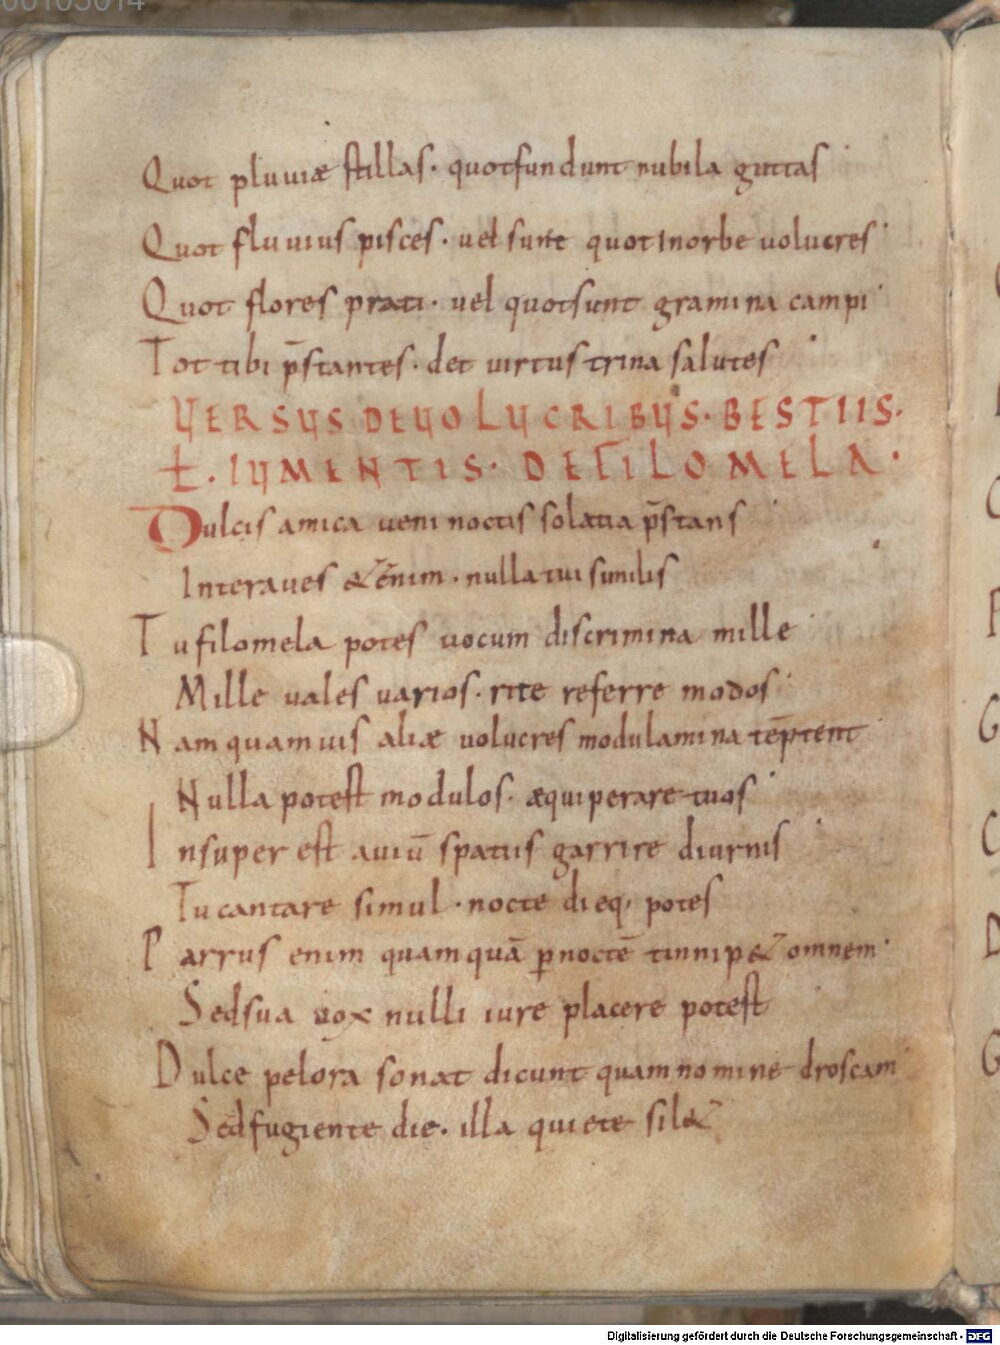 00105014
Quot pluuiæ stillas · quot fundunt nubila guttas
Quot fluuius pisces · uel sunt quot In orbe uolucres
Quot flores prati · uel quot sunt gramina campi
Tot tibi p̄stantes · det uirtus trina salutes
VERSVS DE VOLVCRIBVS · BESTIIS ·
Ł · IVMENTIS · DE FILOMELA ·
Dulcis amica ueni noctis solatia p̄stans
Inter aues &ēnim · nulla tui similis
Tu filomela potes uocum discrimina mille
Mille uales uarios · rite referre modos
Nam quamuis aliæ uolucres modulamina tēptent
Nulla potest modulos · æquiperare tuos
Insuper est auiū spatiis garrire diurnis
Tu cantare simul · nocte dieq; potes
Parrus enim quamquā ꝑ noctē tinnip& omnem
Sed sua uox nulli iure placere potest
Dulce pelora sonat dicunt quam nomine droscam
Sed fugiente die · illa quiete sil&
Digitalisierung gefördert durch die Deutsche Forschungsgemeinschaft - DFG